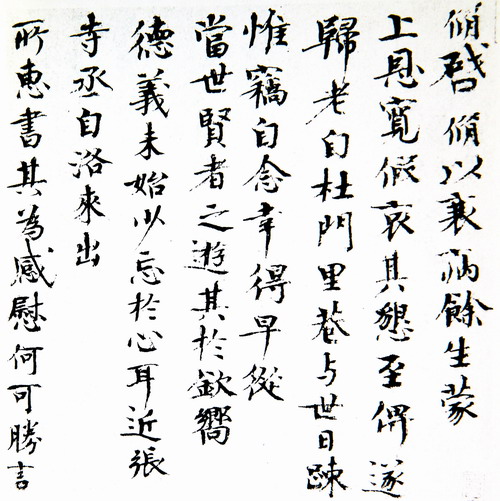 脩啓脩以衰病餘生蒙
上恩寬假哀其懇至俾遂
歸老自杜門里巷与世日踈
惟竊自念幸得早從
當世賢者之遊其於欽嚮
德義未始少忘於心耳近張
寺丞自洛來出
所惠書其為感慰何可勝言